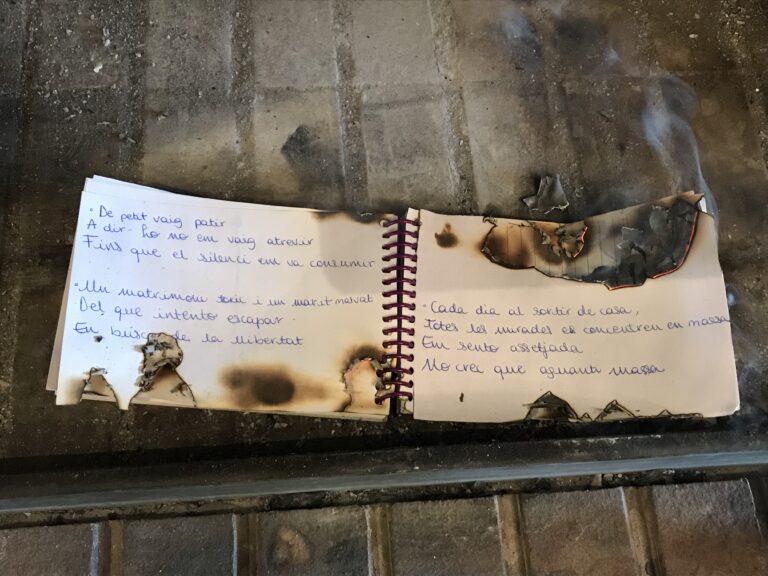 · De petit vaig patir
A dir-ho no em vaig atrevir
Fins que el silenci em va consumir
· Un matrimoni tòxic i un marit malvat
Del que intento escapar
En búsca de la llibertat
· Cada dia al sortir de casa,
Totes les mirades es concentren en massa
Em sento assetjada
No crec que aguanti massa